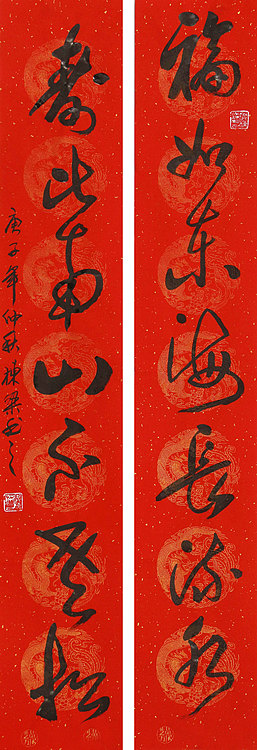 福如东海长流水
寿比南山不老松
庚子年仲秋栋梁书之